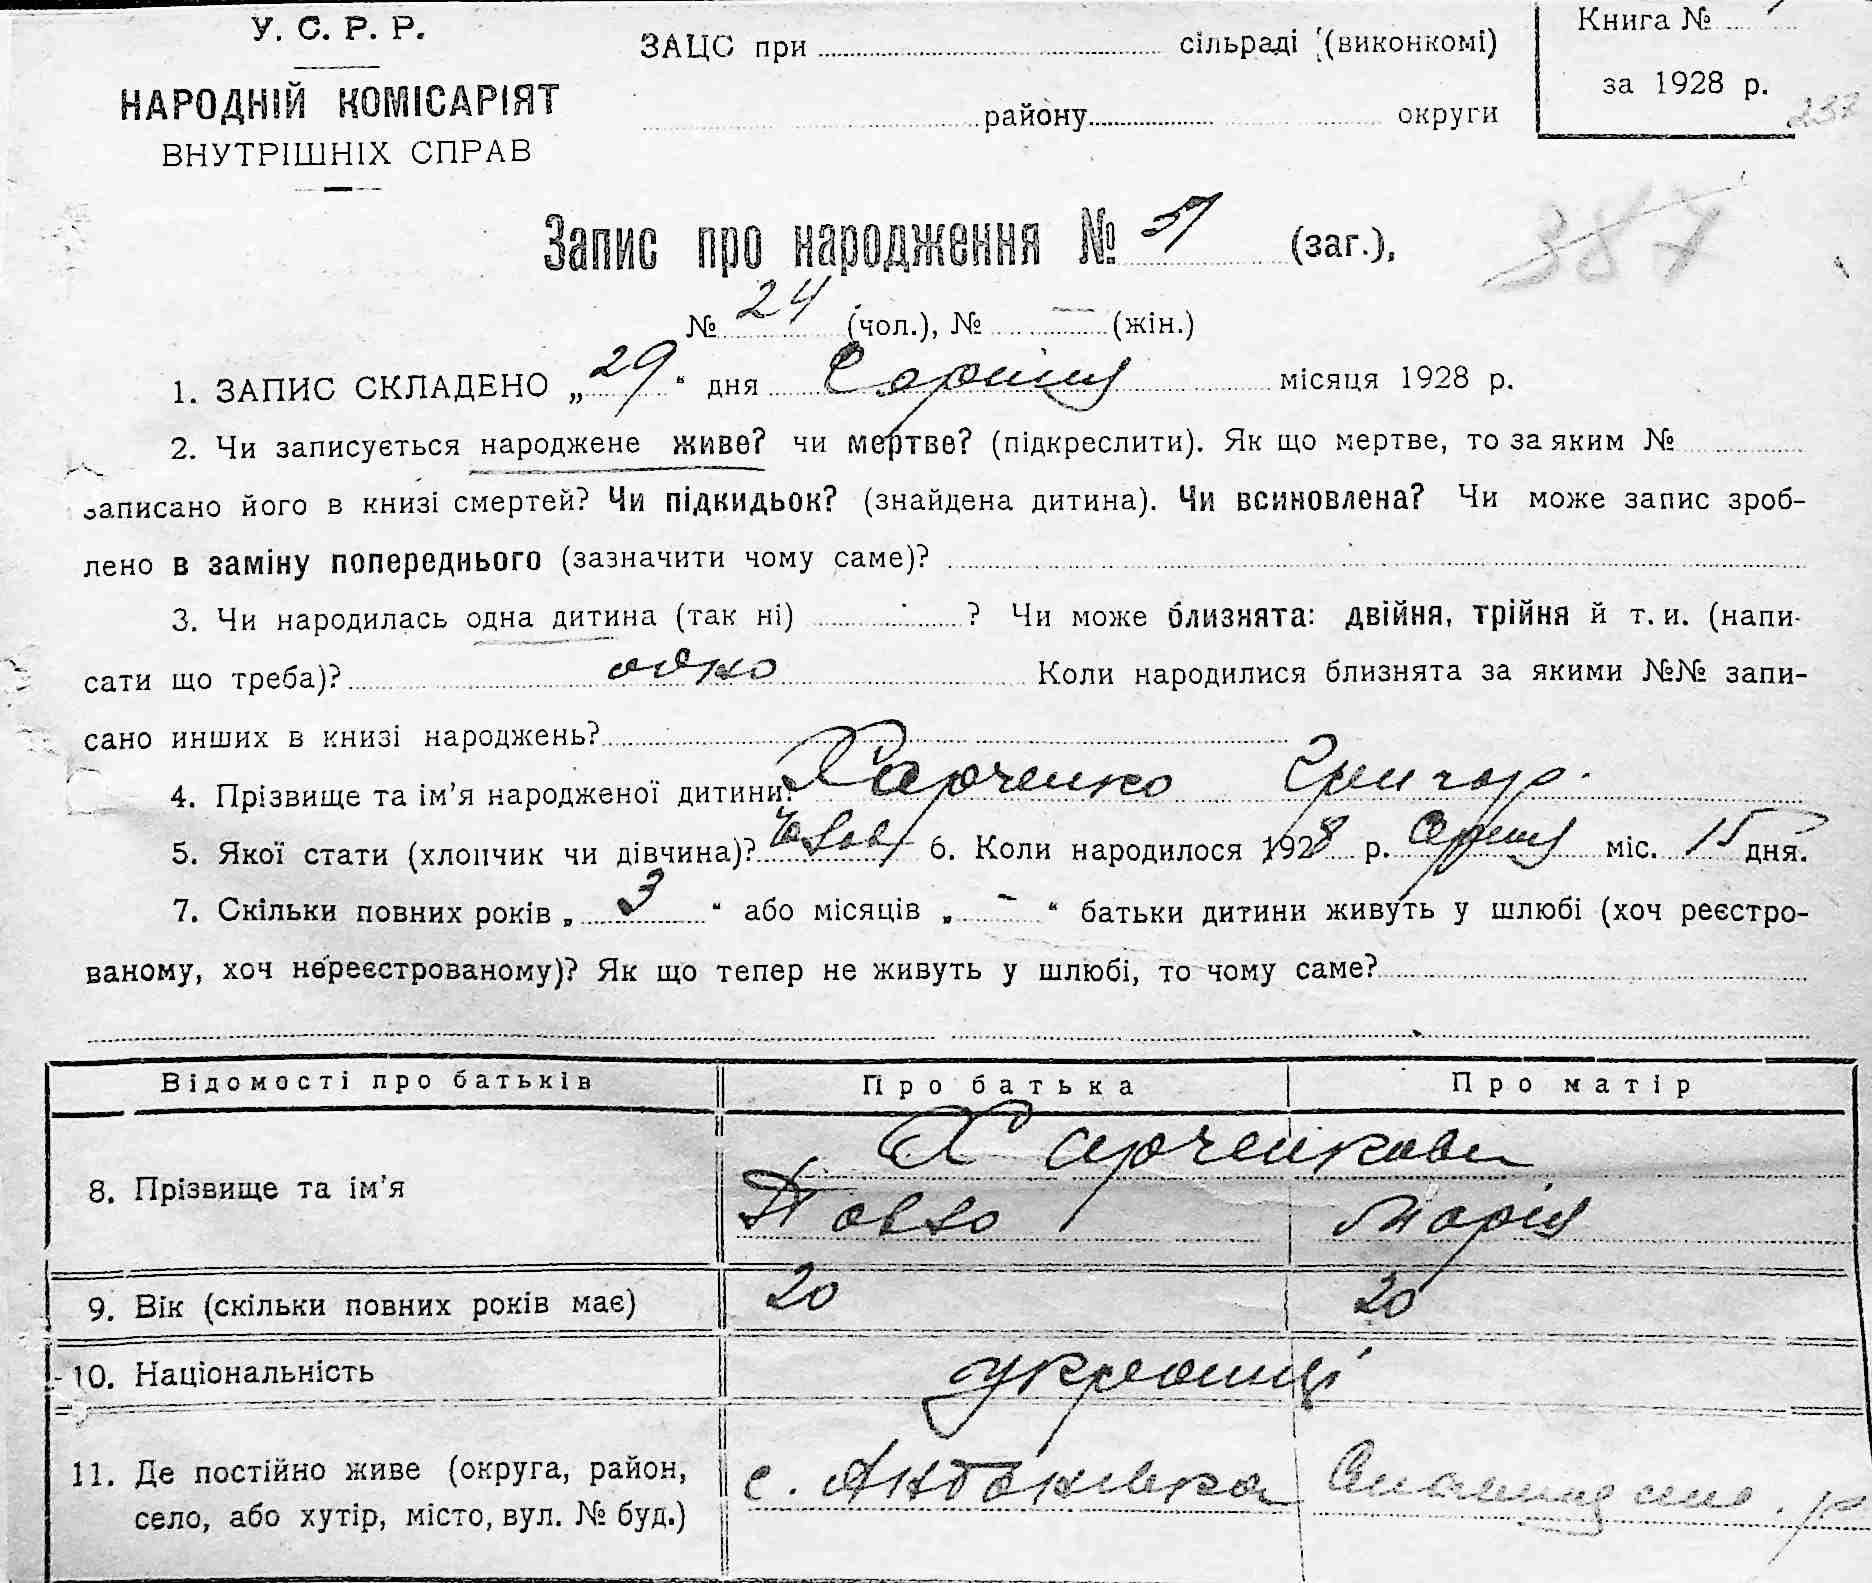 У. С. Р. Р.
НАРОДНІЙ КОМІСАРІЯТ
ВНУТРІШНІХ СПРАВ
ЗАЦС при сільраді (виконкомі)
району округи
Книга №
за 1928 р.
237
387
Запис про народження № 51 (заг.),
№ 24 (чол.), № — (жін.)
1. ЗАПИС СКЛАДЕНО „29“ дня Серпня місяця 1928 р.
2. Чи записується народжене живе? чи мертве? (підкреслити). Як що мертве, то за яким №
записано його в книзі смертей? Чи підкидьок? (знайдена дитина). Чи всиновлена? Чи може запис зроб-
лено в заміну попереднього (зазначити чому саме)?
3. Чи народилась одна дитина (так ні) ? Чи може близнята: двійня, трійня й т. и. (напи-
сати що треба)? одно Коли народилися близнята за якими №№ запи-
сано инших в книзі народжень?
4. Прізвище та ім’я народженої дитини? Харченко Григор.
5. Якої стати (хлопчик чи дівчина)? 6. Коли народилося 1928 р. Серпня міс. 15 дня.
7. Скільки повних років „3“ або місяців „–“ батьки дитини живуть у шлюбі (хоч реєстро-
ваному, хоч нереєстрованому)? Як що тепер не живуть у шлюбі, то чому саме?
Відомості про батьків Про батька Про матір
Харченкови
8. Прізвище та ім’я Павло Марія
9. Вік (скільки повних років має) 20 20
10. Національність українці
11. Де постійно живе (округа, район, с. Антонівка
село, або хутір, місто, вул. № буд.)